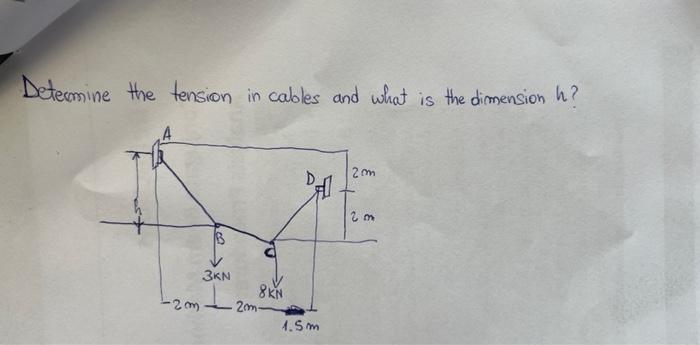 Determine the tension in cables and what is the dimension h?
A
D
2m
h
2m
B
C
3KN
8KN
2m
2m
1.5m